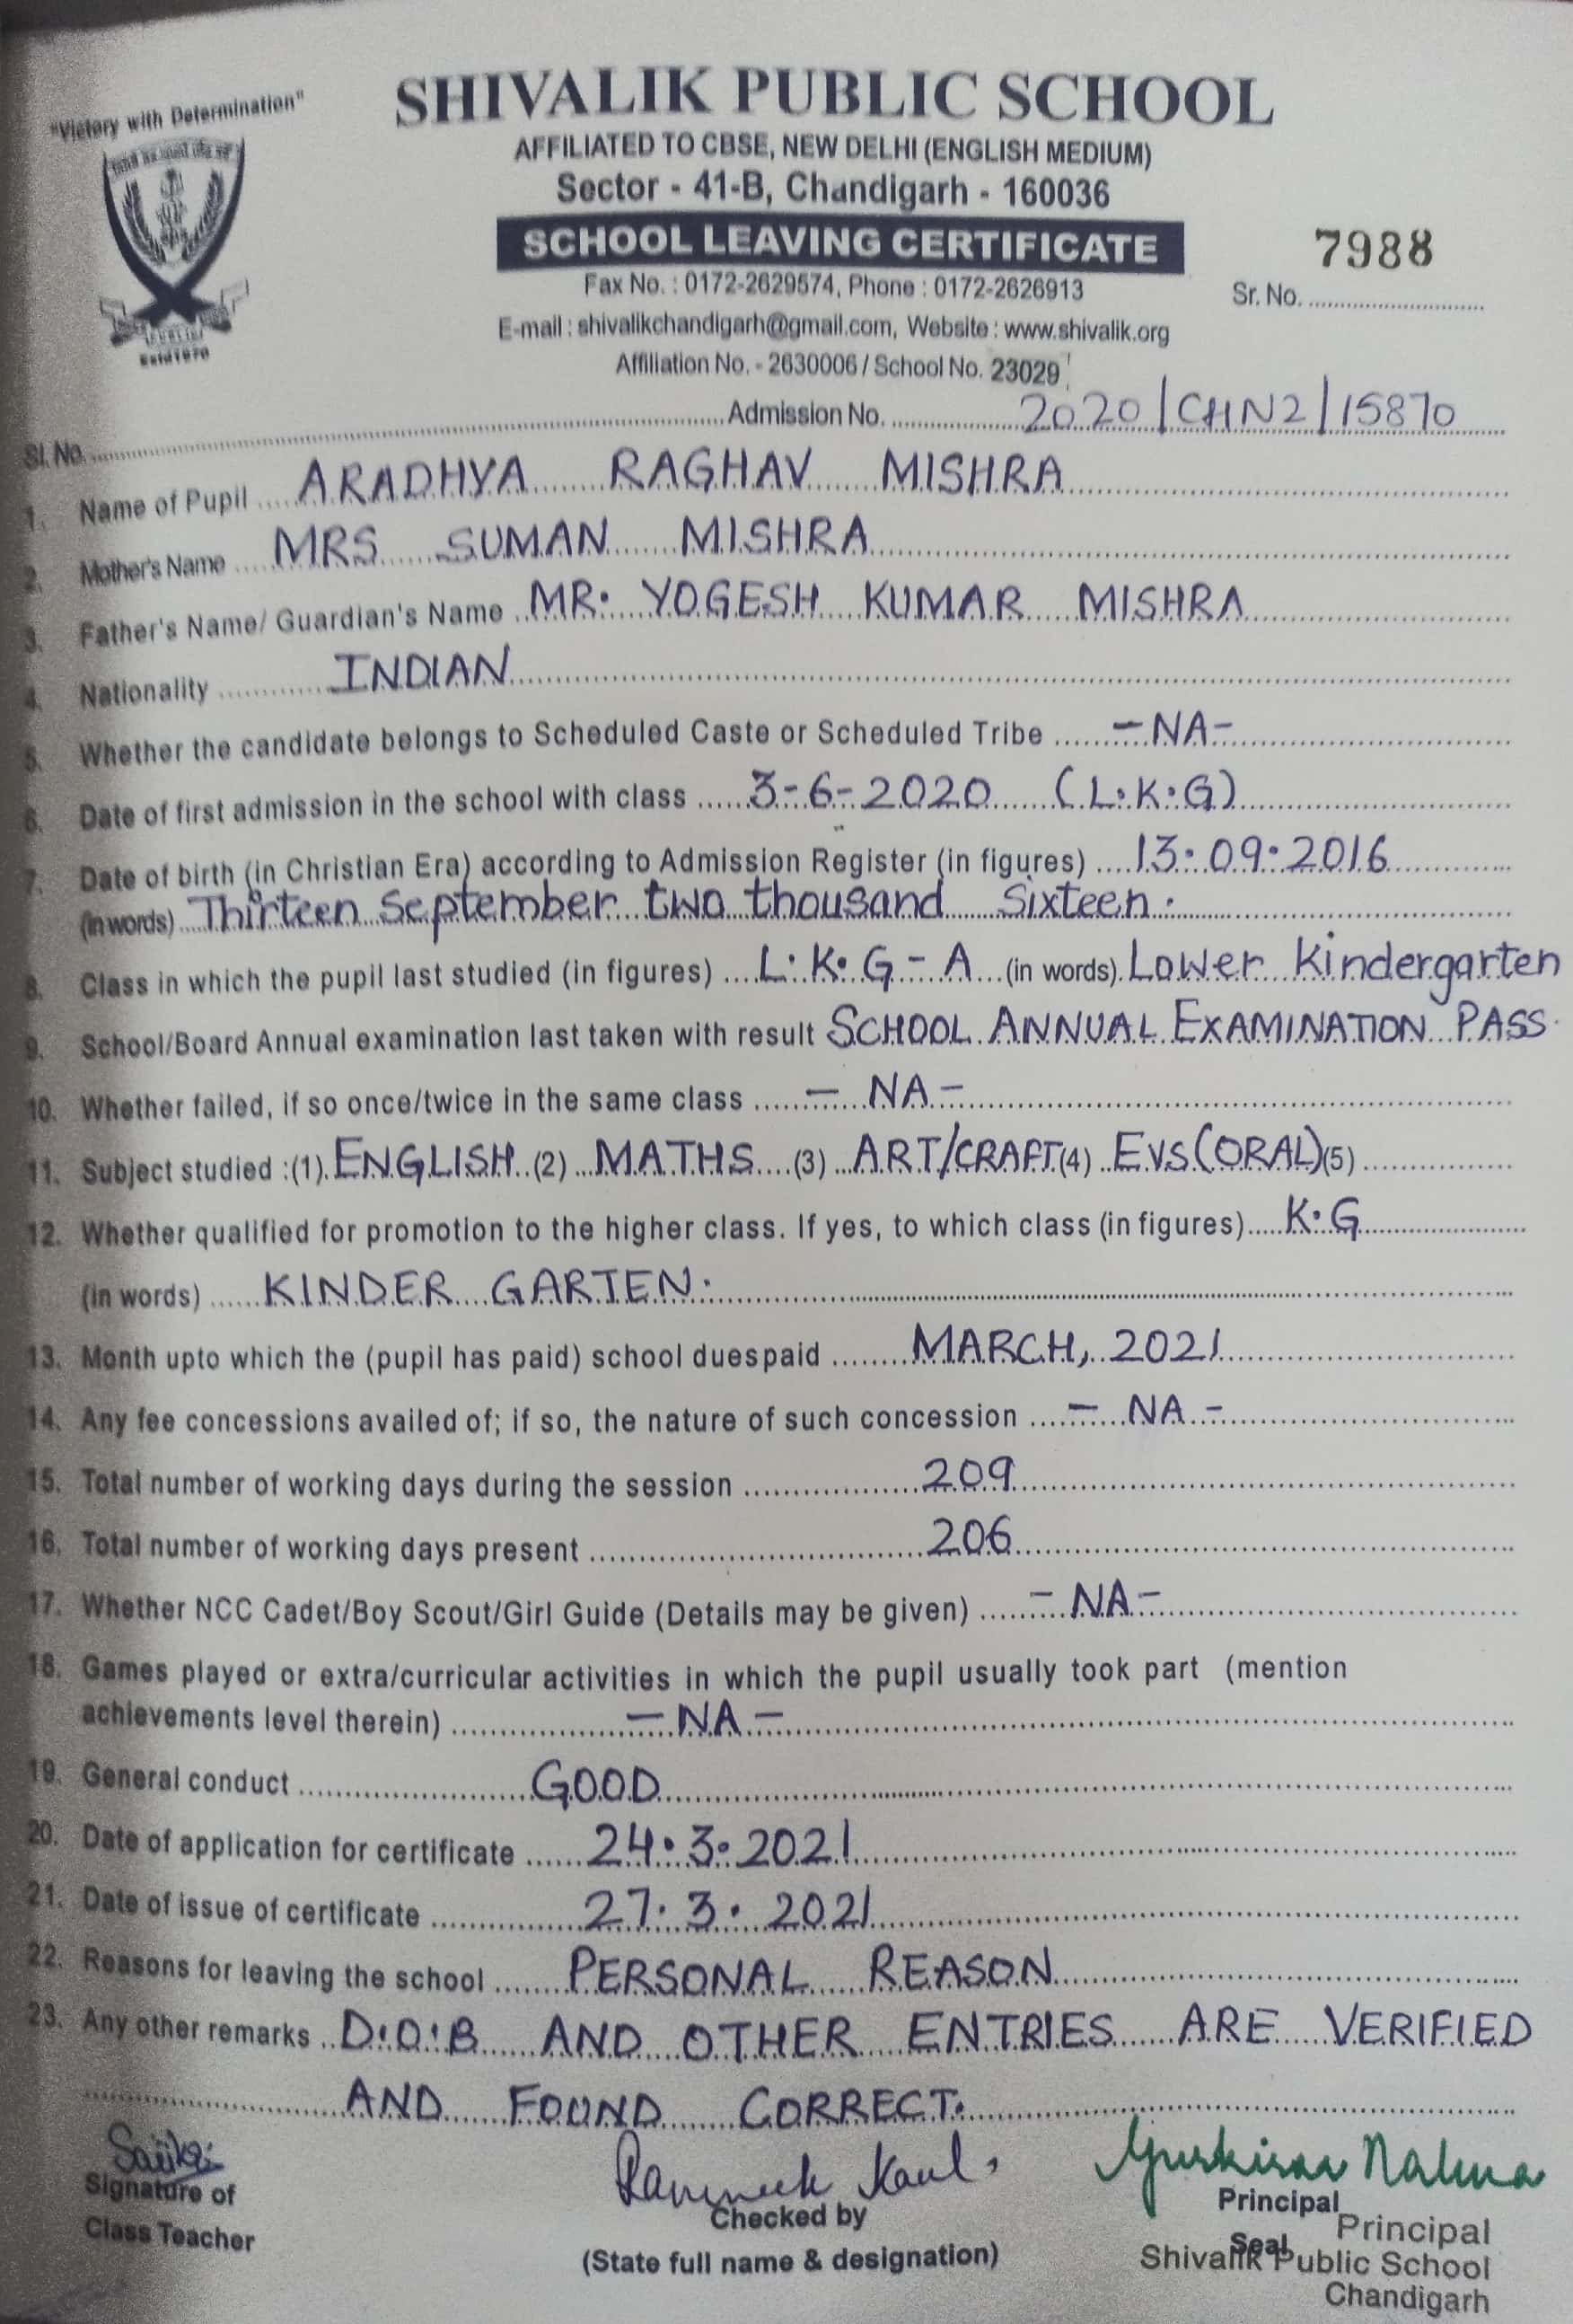 "Victory with Determination"
SHIVALIK PUBLIC SCHOOL
AFFILIATED TO CBSE, NEW DELHI (ENGLISH MEDIUM)
Sector - 41-B, Chandigarh - 160036
SCHOOL LEAVING CERTIFICATE
7988
Fax No. : 0172-2629574, Phone : 0172-2626913
Sr. No.
E-mail : shivalikchandigarh@gmail.com, Website : www.shivalik.org
Estd 1970
Affiliation No. - 2630006 / School No. 23029
Sl. No. Admission No. 2020/CHN2/15870
1. Name of Pupil ARADHYA RAGHAV MISHRA
2. Mother's Name MRS SUMAN MISHRA
3. Father's Name/ Guardian's Name MR. YOGESH KUMAR MISHRA
4. Nationality INDIAN
5. Whether the candidate belongs to Scheduled Caste or Scheduled Tribe -NA-
6. Date of first admission in the school with class 3-6-2020 (L.K.G)
7. Date of birth (in Christian Era) according to Admission Register (in figures) 13.09.2016
(in words) Thirteen September two thousand Sixteen.
8. Class in which the pupil last studied (in figures) L.K.G - A (in words) Lower Kindergarten
9. School/Board Annual examination last taken with result SCHOOL ANNUAL EXAMINATION PASS.
10. Whether failed, if so once/twice in the same class - NA -
11. Subject studied :(1) ENGLISH (2) MATHS (3) ART/CRAFT (4) EVS(ORAL) (5)
12. Whether qualified for promotion to the higher class. If yes, to which class (in figures) K.G
(in words) KINDER GARTEN.
13. Month upto which the (pupil has paid) school duespaid MARCH, 2021
14. Any fee concessions availed of; if so, the nature of such concession - NA -
15. Total number of working days during the session 209
16. Total number of working days present 206
17. Whether NCC Cadet/Boy Scout/Girl Guide (Details may be given) - NA -
18. Games played or extra/curricular activities in which the pupil usually took part (mention
achievements level therein) - NA -
19. General conduct GOOD
20. Date of application for certificate 24.3.2021
21. Date of issue of certificate 27.3.2021
22. Reasons for leaving the school PERSONAL REASON
23. Any other remarks D.O.B AND OTHER ENTRIES ARE VERIFIED
AND FOUND CORRECT.
Signature of
Class Teacher
Checked by
(State full name & designation)
Principal
Seal
Principal
Shivalik Public School
Chandigarh